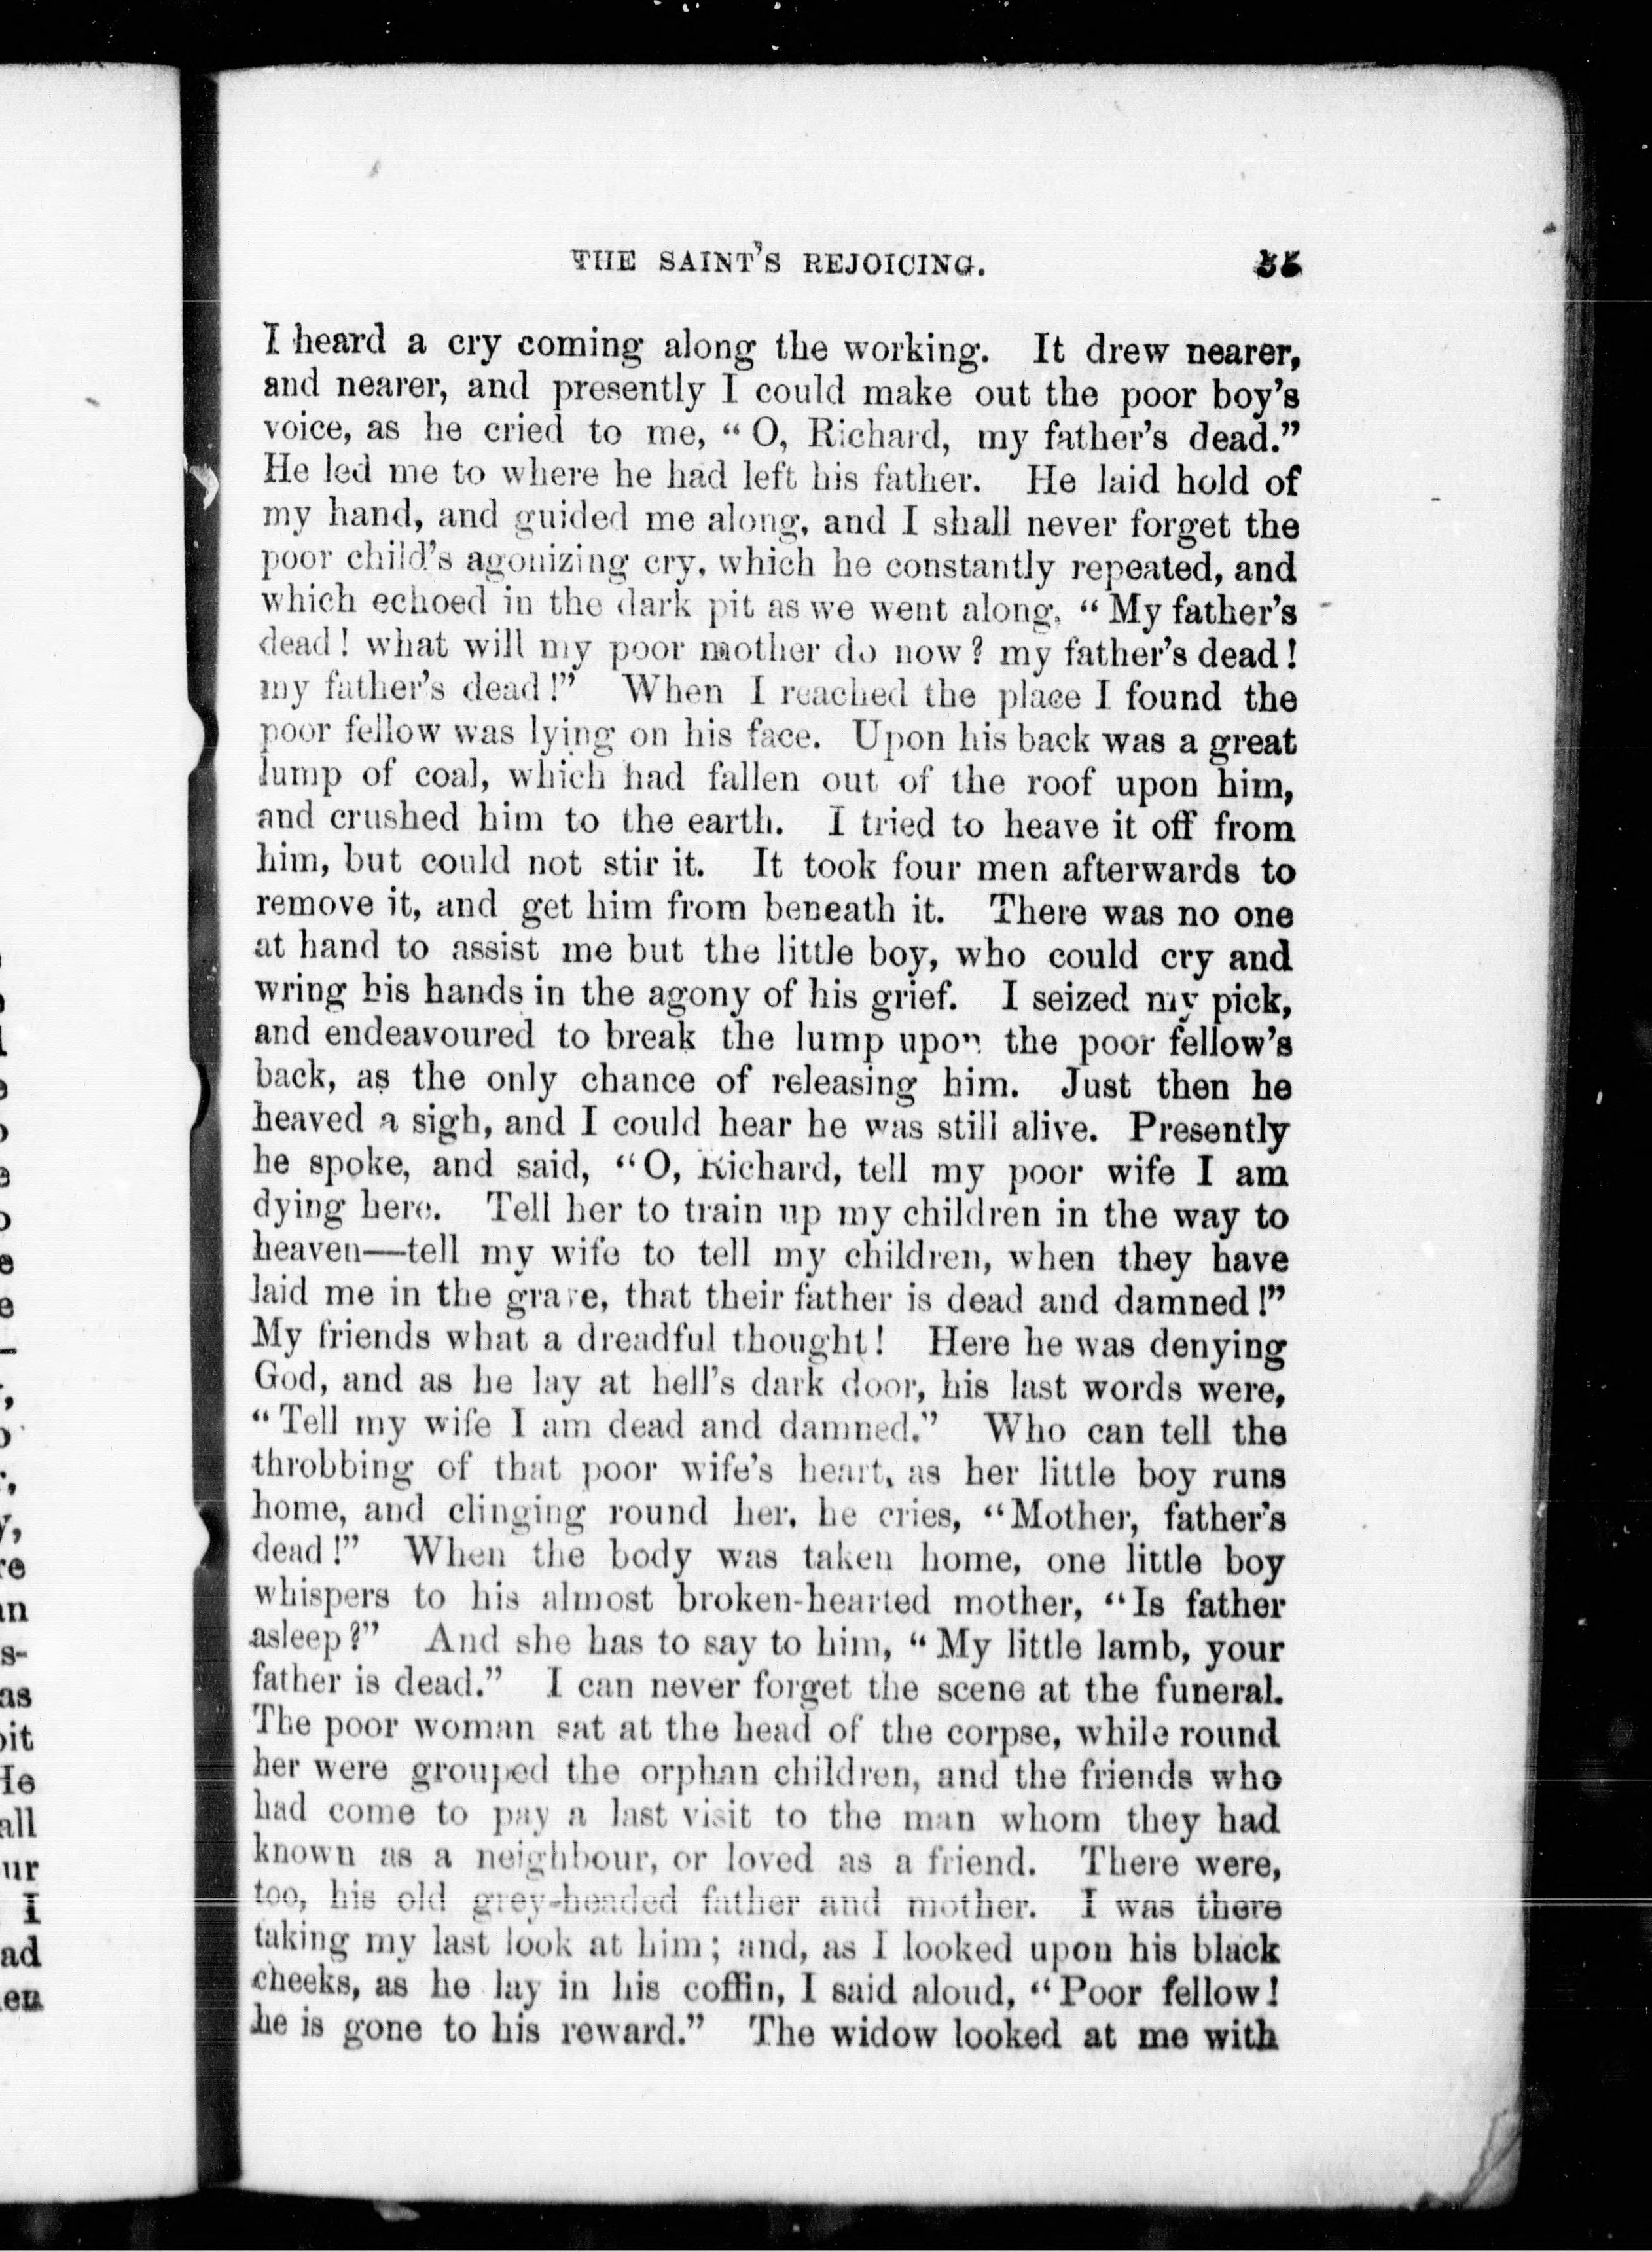 THE SAINT'S REJOICING. 55
I heard a cry coming along the working. It drew nearer,
and nearer, and presently I could make out the poor boy's
voice, as he cried to me, “O, Richard, my father's dead.”
He led me to where he had left his father. He laid hold of
my hand, and guided me along, and I shall never forget the
poor child's agonizing cry, which he constantly repeated, and
which echoed in the dark pit as we went along, “My father's
dead! what will my poor mother do now? my father's dead!
my father's dead!” When I reached the place I found the
poor fellow was lying on his face. Upon his back was a great
lump of coal, which had fallen out of the roof upon him,
and crushed him to the earth. I tried to heave it off from
him, but could not stir it. It took four men afterwards to
remove it, and get him from beneath it. There was no one
at hand to assist me but the little boy, who could cry and
wring his hands in the agony of his grief. I seized my pick,
and endeavoured to break the lump upon the poor fellow's
back, as the only chance of releasing him. Just then he
heaved a sigh, and I could hear he was still alive. Presently
he spoke, and said, “O, Richard, tell my poor wife I am
dying here. Tell her to train up my children in the way to
heaven—tell my wife to tell my children, when they have
laid me in the grave, that their father is dead and damned!”
My friends what a dreadful thought! Here he was denying
God, and as he lay at hell's dark door, his last words were,
“Tell my wife I am dead and damned.” Who can tell the
throbbing of that poor wife's heart, as her little boy runs
home, and clinging round her, he cries, “Mother, father's
dead!” When the body was taken home, one little boy
whispers to his almost broken-hearted mother, “Is father
asleep?” And she has to say to him, “My little lamb, your
father is dead.” I can never forget the scene at the funeral.
The poor woman sat at the head of the corpse, while round
her were grouped the orphan children, and the friends who
had come to pay a last visit to the man whom they had
known as a neighbour, or loved as a friend. There were,
too, his old grey-headed father and mother. I was there
taking my last look at him; and, as I looked upon his black
cheeks, as he lay in his coffin, I said aloud, “Poor fellow!
he is gone to his reward.” The widow looked at me with